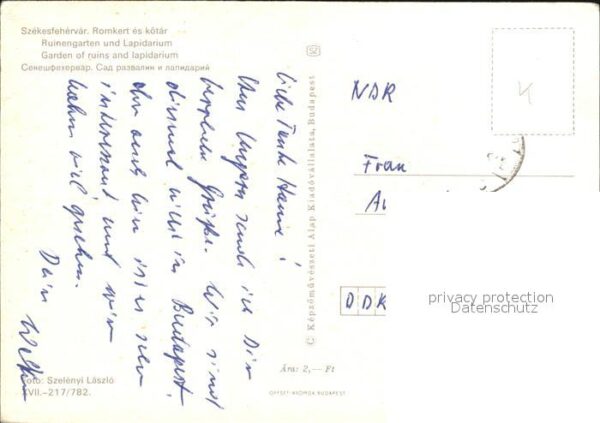 Székesfehérvár. Romkert és kőtár
Ruinengarten und Lapidarium
Garden of ruins and lapidarium
Секешфехервар. Сад развалин и лапидарий
Liebe Tante Hanni!
Aus Ungarn sende ich Dir
herzliche Grüße. Wir sind
diesmal nicht in Budapest,
aber auch hier ist es sehr
interessant und wir
haben viel gesehen.
Dein
Foto: Szelényi László
XVII.–217/782.
© Képzőművészeti Alap Kiadóvállalata, Budapest
Ára: 2,— Ft
OFFSET-NYOMDA BUDAPEST
NDR
Frau
DDR
privacy protection
Datenschutz